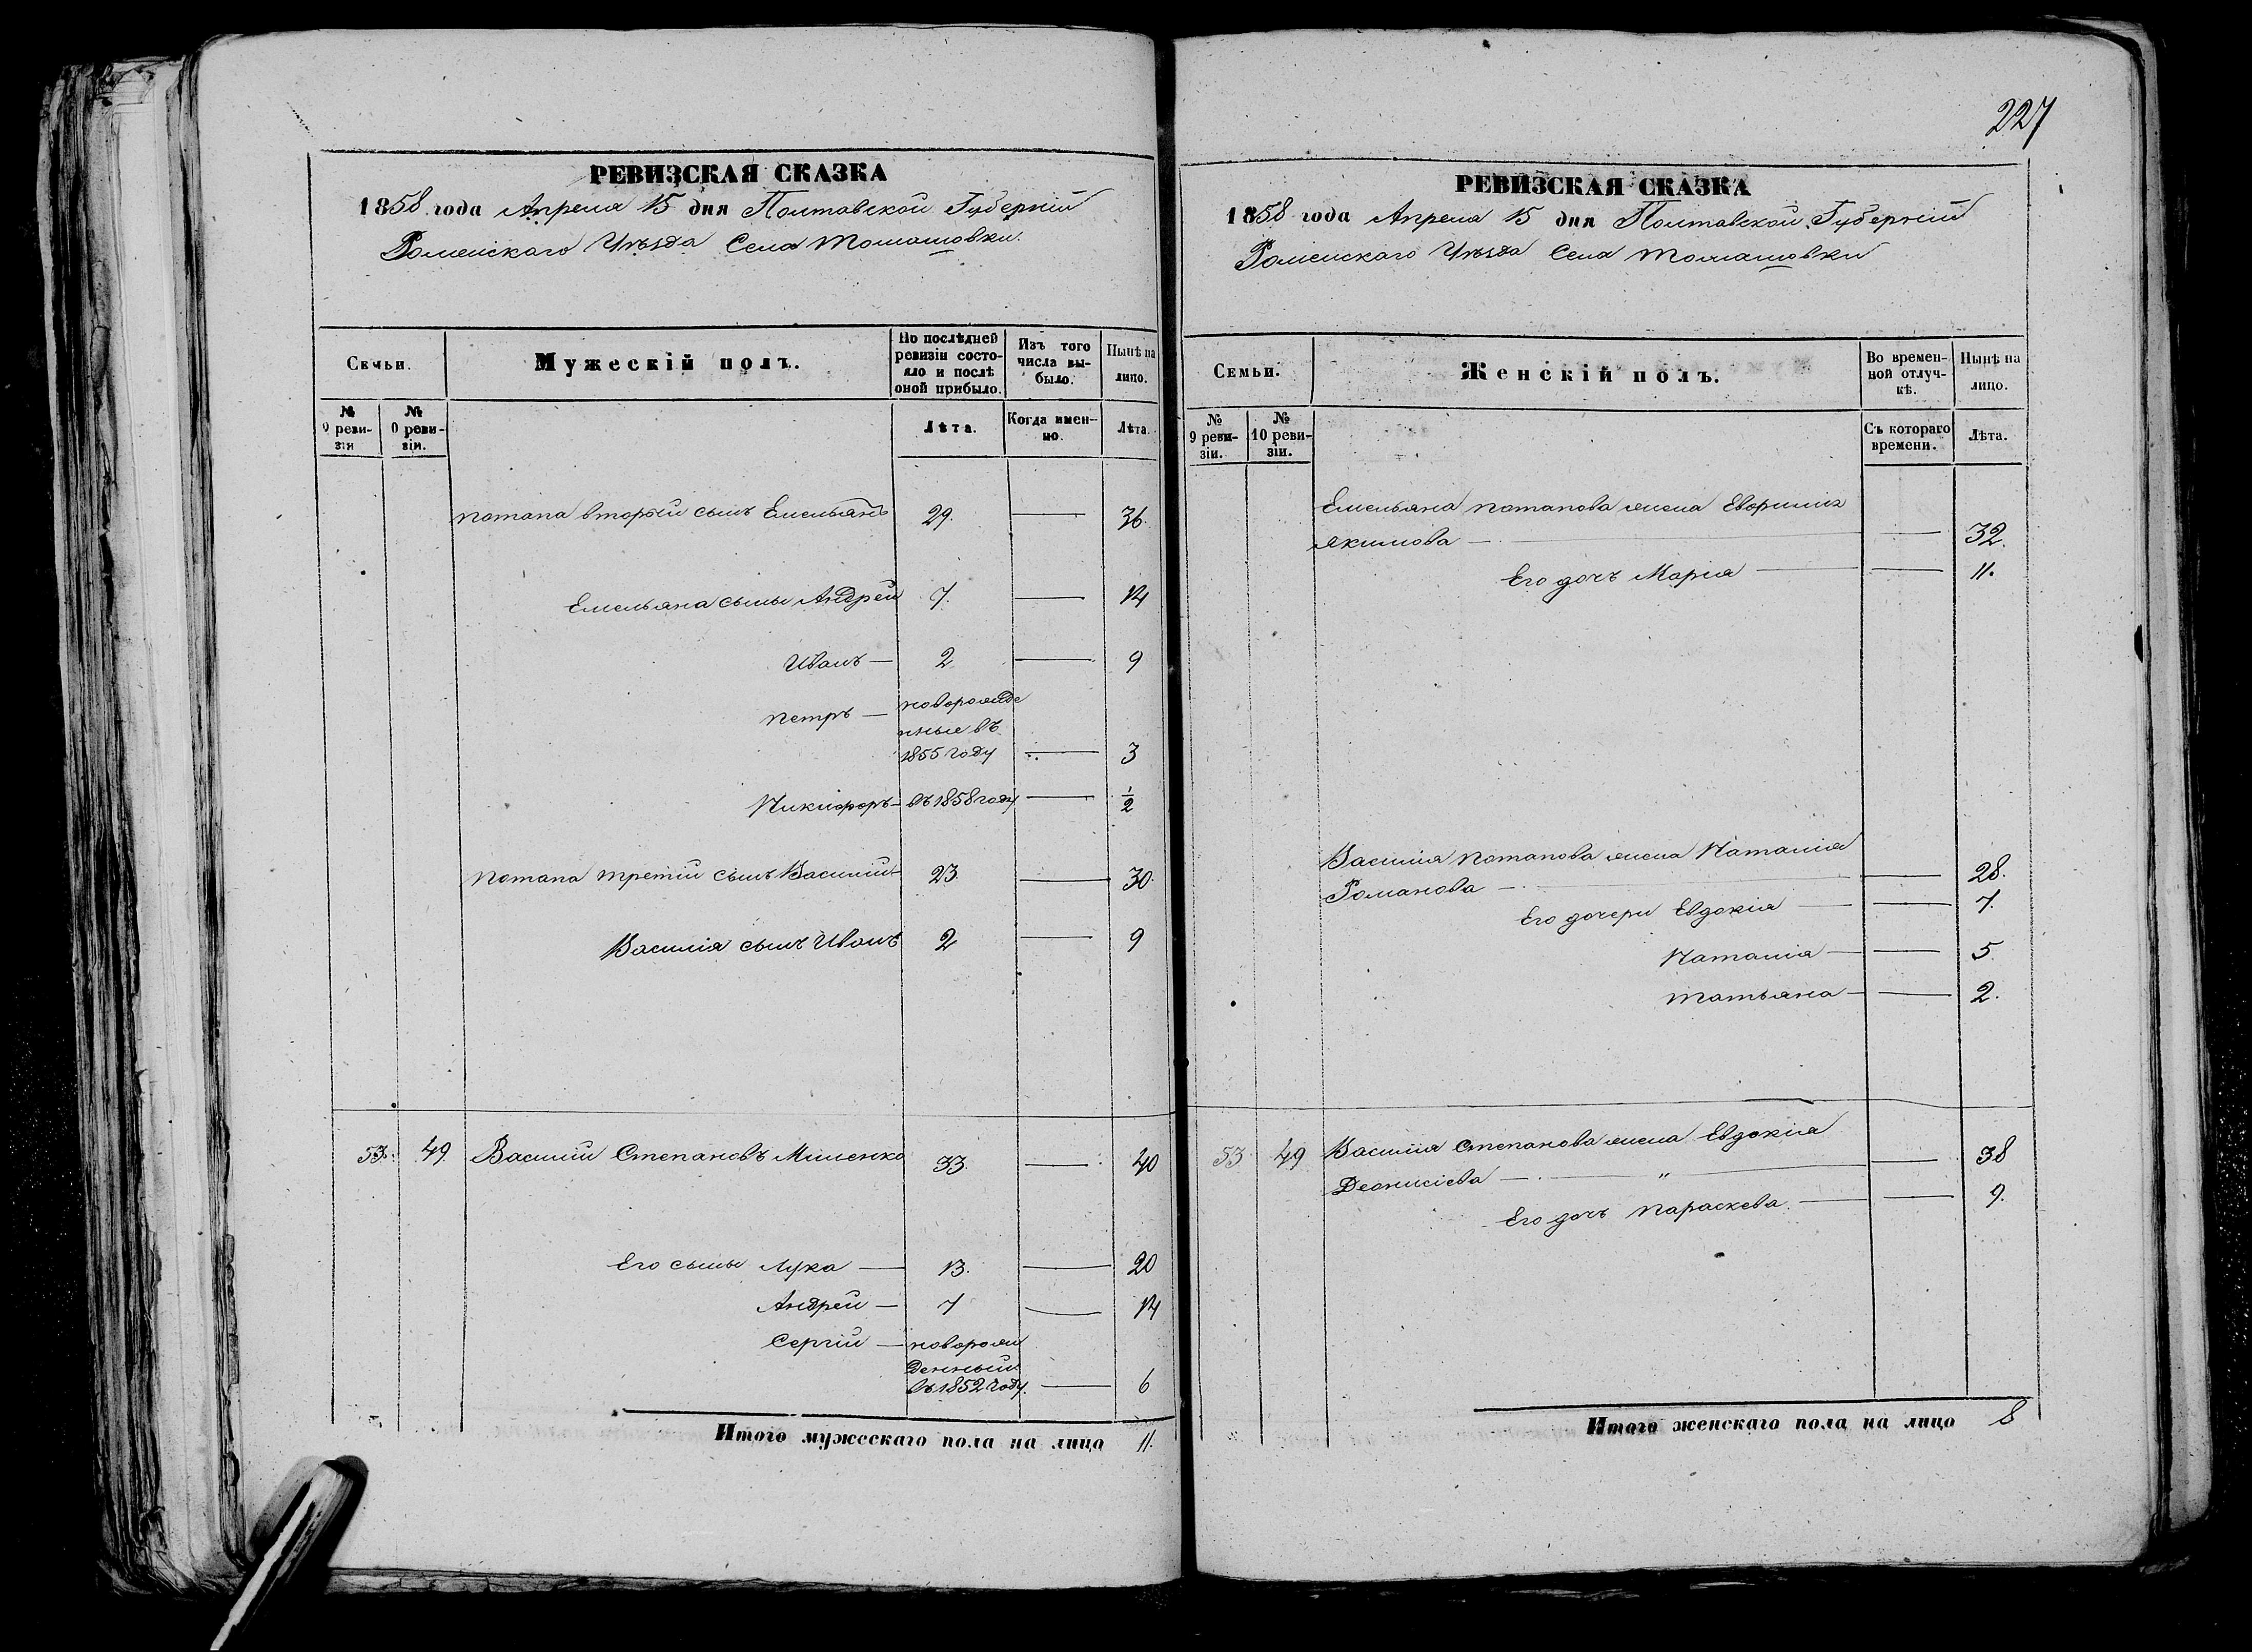 227
РЕВИЗСКАЯ СКАЗКА
1858 года Апреля 15 дня Полтавской Губерніи
Роменскаго Уѣзда Села Томашовки.
Семьи.
Мужескій полъ.
По послѣдней ревизіи состо-
яло и послѣ оной прибыло.
Изъ того числа вы-
было.
Нынѣ на лицо.
№ 9 реви-
зіи
№ 10 реви-
зіи.
Лѣта.
Когда имен-
но.
Лѣта.
Потапа вторый сынъ Емельянъ 29. — 36.
Емельяна сыны Андрей 7. — 14
Иванъ — 2 — 9
Петръ — новорожде
нные въ
1855 году — 3
Никифоръ — въ 1858 году — 1/2
Потапа третій сынъ Василий 23. — 30.
Василія сынъ Иванъ 2 — 9
53. 49. Василий Степановъ Миленко 33. — 40
Его сыны Лука — 13. — 20
Андрей — 7 — 14
Сергій — новорож
денный
въ 1852 году. — 6
Итого мужескаго пола на лицо 11.
РЕВИЗСКАЯ СКАЗКА
1858 года Апреля 15 дня Полтавской Губерніи
Роменскаго Уѣзда Села Томашовки
Семьи.
Женскій полъ.
Во времен-
ной отлуч-
кѣ.
Нынѣ на лицо.
№ 9 реви-
зіи.
№ 10 реви-
зіи.
Съ котораго времени.
Лѣта.
Емельяна Потапова жена
Якимова — — 32.
Его дочь Марія — — 11.
Василія Потапова жена Наталія
Романова — — 28.
Его дочери Евдокія — — 7.
Наталія — — 5.
Татьяна — — 2.
53 49 Василія Степанова жена Евдокія
Деонисіева — " — 38
Его дочь Параскева. — — 9.
Итого женскаго пола на лицо 8